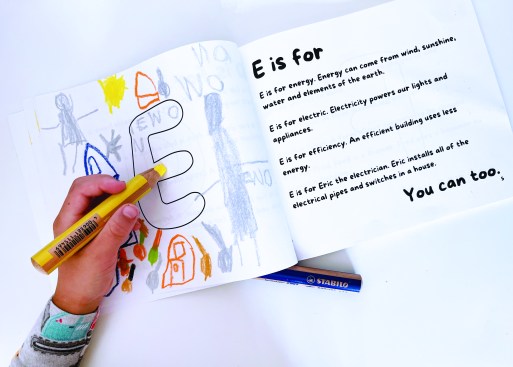 E is for
E is for energy. Energy can come from wind, sunshine,
water and elements of the earth.
E is for electric. Electricity powers our lights and
appliances.
E is for efficiency. An efficient building uses less
energy.
E is for Eric the electrician. Eric installs all of the
electrical pipes and switches in a house.
You can too.
E
EWO
WO
STABILO